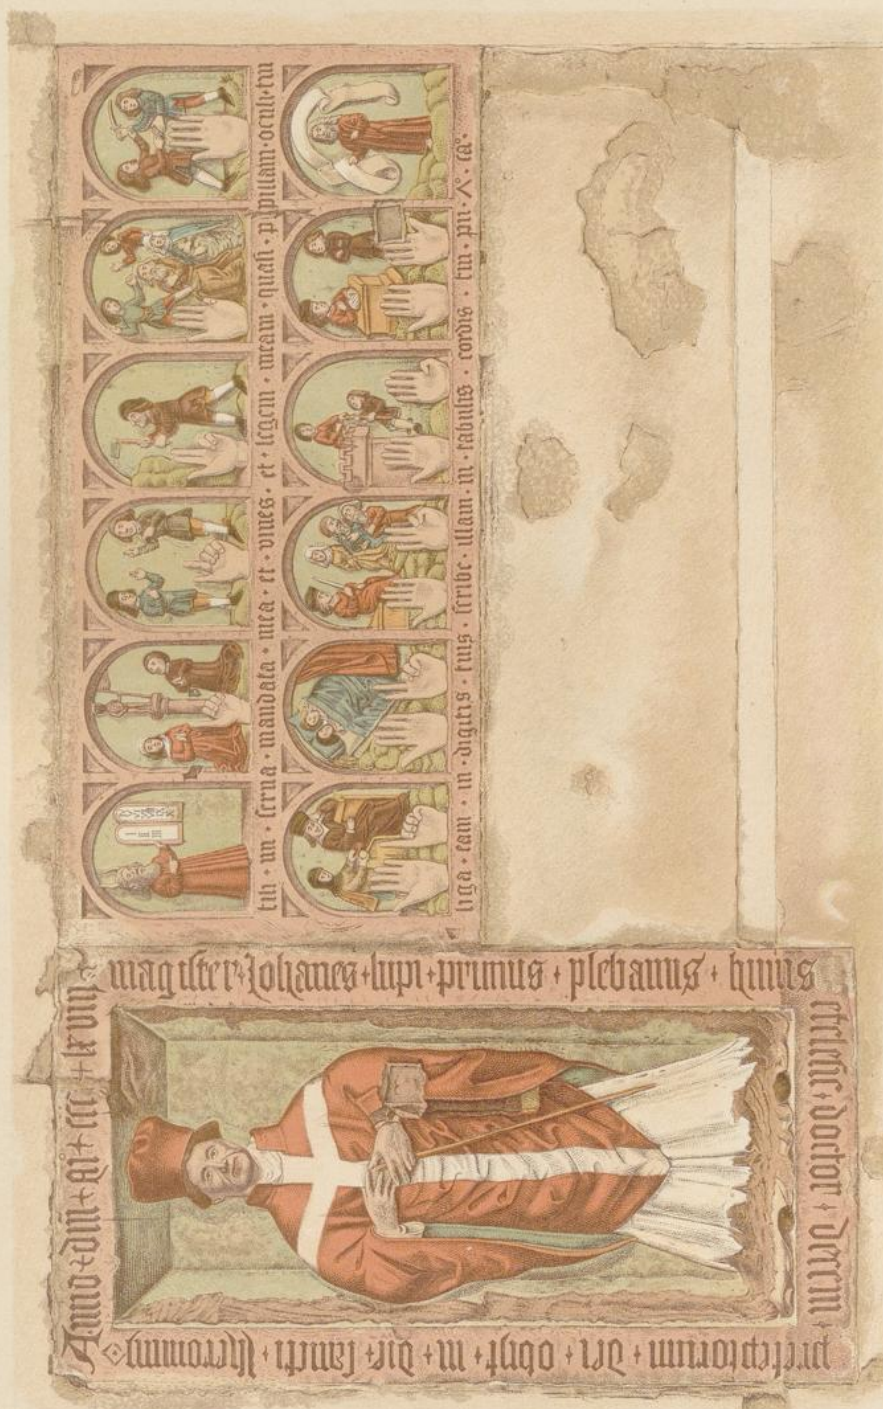 fili · mi · serua · mandata · mea · et · viues · et · legem · meam · quasi · pupillam · oculi · tui
liga · eam · in · digitis · tuis · scribe · illam · in · tabulis · cordis · tui · ca°
Anno + dm̄ + lxviij +
magister + Johanes + lupi + primus + plebanus + huius
ecclesie + doctor + decem +
preceptorum + dei + obyt + in + die + sancti + iheronimy